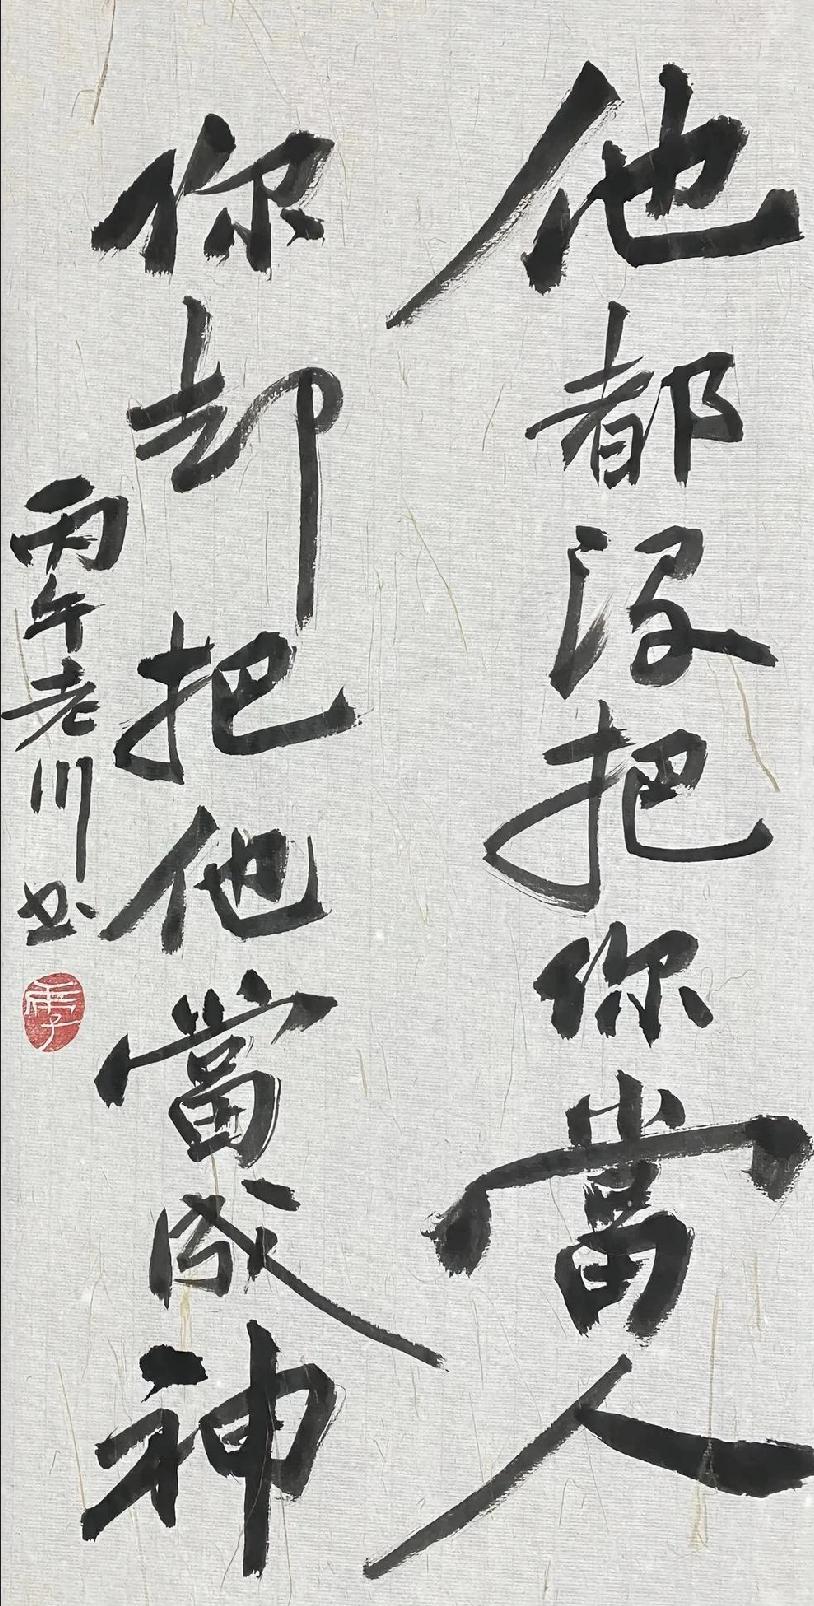 他都没把你當人
你却把他當成神
丙午老川书
季